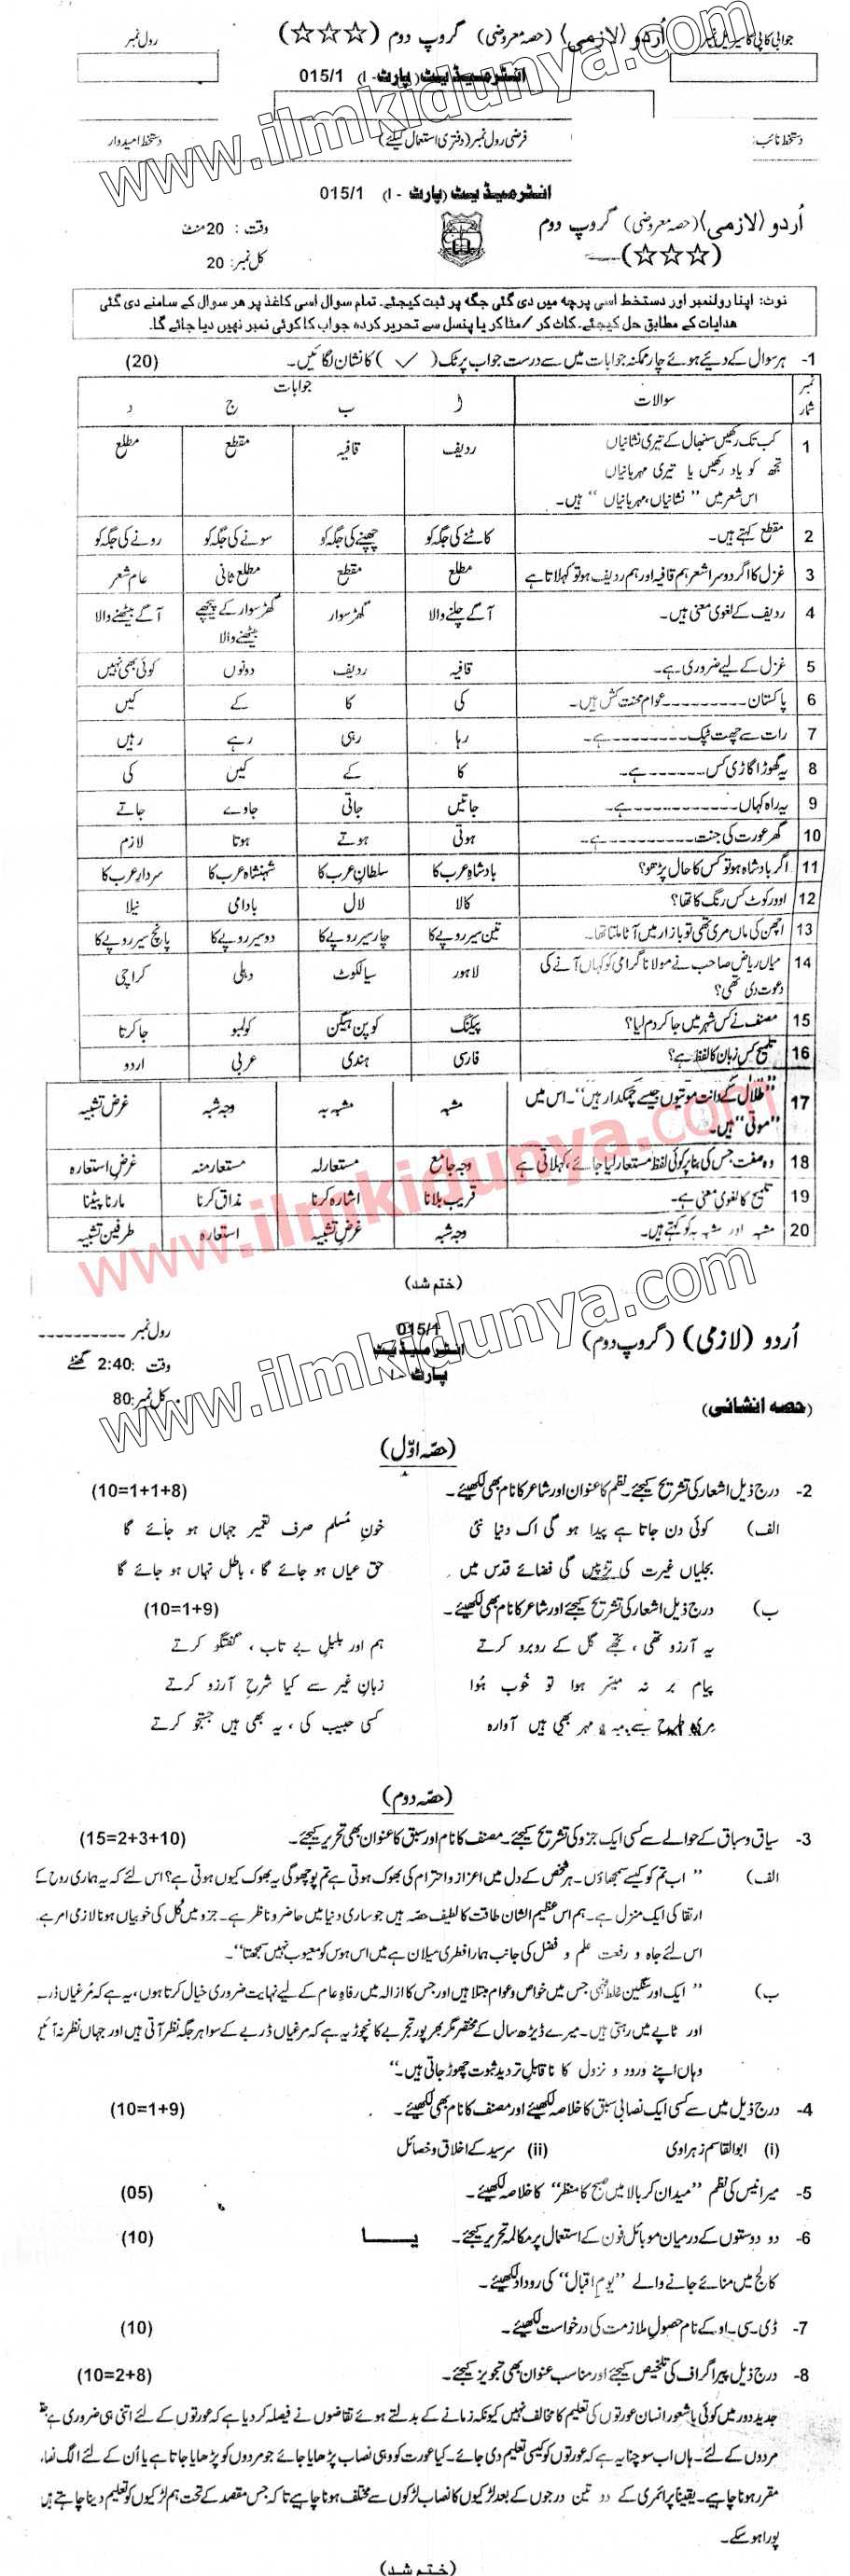 جوابی کاپی کا سیریل نمبر اُردو (لازمی) (حصہ معروضی) گروپ دوم (☆☆☆) رول نمبر
انٹرمیڈیٹ (پارٹ - I) 015/1
دستخط نائب: فرضی رول نمبر (دفتری استعمال کیلئے) دستخط امیدوار
انٹرمیڈیٹ (پارٹ - I) 015/1
اُردو (لازمی) (حصہ معروضی) گروپ دوم وقت : 20 منٹ
(☆☆☆) کل نمبر: 20
نوٹ: اپنا رولنمبر اور دستخط اسی پرچہ میں دی گئی جگہ پر ثبت کیجئے۔ تمام سوال اسی کاغذ پر ہر سوال کے سامنے دی گئی
ہدایات کے مطابق حل کیجئے۔ کاٹ کر / مٹا کر یا پنسل سے تحریر کردہ جواب کا کوئی نمبر نہیں دیا جائے گا۔
1- ہر سوال کے دیئے ہوئے چار ممکنہ جوابات میں سے درست جواب پر ٹک (✓) کا نشان لگائیں۔ (20)
نمبر شمار سوالات جوابات
ا ب ج د
1 کب تک رکھیں سنبھال کے تیری نشانیاں ردیف قافیہ مقطع مطلع
تجھ کو یاد رکھیں یا تیری مہربانیاں
اس شعر میں "نشانیاں، مہربانیاں" ہیں۔
2 مقطع کہتے ہیں۔ کاٹنے کی جگہ کو چھپنے کی جگہ کو سونے کی جگہ کو رونے کی جگہ کو
3 غزل کا اگر دوسرا شعر ہم قافیہ اور ہم ردیف ہو تو کہلاتا ہے مطلع مقطع مطلع ثانی عام شعر
4 ردیف کے لغوی معنی ہیں۔ آگے چلنے والا گھڑ سوار گھڑ سوار کے پیچھے بیٹھنے والا آگے بیٹھنے والا
5 غزل کے لیے ضروری ہے۔ قافیہ ردیف دونوں کوئی بھی نہیں
6 پاکستان ---------- عوام محنت کش ہیں۔ کی کا کے کیں
7 رات سے چھت ٹپک ---------- ہے۔ رہا رہی رہے رہیں
8 یہ گھوڑا گاڑی کس ------- ہے۔ کا کے کیں کی
9 یہ راہ کہاں ------------ ہے۔ جاتیں جاتی جاوے جاتے
10 گھر عورت کی جنت ---------- ہے۔ ہوتی ہوتے ہوتا لازم
11 اگر بادشاہ ہو تو کس کا حال پڑھو؟ بادشاہِ عرب کا سلطانِ عرب کا شہنشاہ عرب کا سردارِ عرب کا
12 اوورکوٹ کس رنگ کا تھا؟ کالا لال بادامی نیلا
13 اچھن کی ماں مری تھی تو بازار میں آٹا ملتا تھا۔ تین سیر روپے کا چار سیر روپے کا دو سیر روپے کا پانچ سیر روپے کا
14 میاں ریاض صاحب نے مولانا گرامی کو کہاں آنے کی لاہور سیالکوٹ دہلی کراچی
دعوت دی تھی؟
15 مصنف نے کس شہر میں جا کر دم لیا؟ پیکنگ کوپن ہیگن کولمبو جاکرتا
16 تلمیح کس زبان کا لفظ ہے؟ فارسی ہندی عربی اردو
17 "طلال کے دانت موتیوں جیسے چمکدار ہیں"۔ اس میں مشبہ مشبہ بہ وجہ شبہ غرض تشبیہ
"موتی" ہیں۔
18 وہ صفت جس کی بنا پر کوئی لفظ مستعار لیا جائے، کہلاتی ہے وجہ جامع مستعار لہ مستعار منہ غرضِ استعارہ
19 تلمیح کا لغوی معنی ہے۔ قریب بلانا اشارہ کرنا مذاق کرنا مارنا پیٹنا
20 مشبہ اور مشبہ بہ کو کہتے ہیں۔ وجہ شبہ غرضِ تشبیہ استعارہ طرفین تشبیہ
(ختم شد)
اُردو (لازمی) (گروپ دوم) 015/1 رول نمبر ----------
انٹرمیڈیٹ وقت :2:40 گھنٹے
پارٹ -I کل نمبر: 80
(حصہ انشائی)
(حصّہ اوّل)
2- درج ذیل اشعار کی تشریح کیجئے۔ نظم کا عنوان اور شاعر کا نام بھی لکھیئے۔ (10=1+1+8)
الف) کوئی دن جاتا ہے پیدا ہو گی اک دنیا نئی خونِ مُسلم صرف تعمیر جہاں ہو جائے گا
بجلیاں غیرت کی تڑپیں گی فضائے قدس میں حق عیاں ہو جائے گا، باطل نہاں ہو جائے گا
ب) درج ذیل اشعار کی تشریح کیجئے اور شاعر کا نام بھی لکھیئے۔ (10=1+9)
یہ آرزو تھی، تجھے گل کے روبرو کرتے ہم اور بلبلِ بے تاب، گفتگو کرتے
پیام بر نہ میسّر ہوا تو خوب ہُوا زبانِ غیر سے کیا شرحِ آرزو کرتے
مری طرح سے مہ و مہر بھی ہیں آوارہ کسی حبیب کی، یہ بھی ہیں جستجو کرتے
(حصّہ دوم)
3- سیاق و سباق کے حوالے سے کسی ایک جزو کی تشریح کیجئے۔ مصنف کا نام اور سبق کا عنوان بھی تحریر کیجئے۔ (15=2+3+10)
الف) "اب تم کو کیسے سمجھاؤں۔ ہر شخص کے دل میں اعزاز و احترام کی بھوک ہوتی ہے تم پوچھو گی یہ بھوک کیوں ہوتی ہے؟ اس لئے کہ یہ ہماری روح کے
ارتقا کی ایک منزل ہے۔ ہم اس عظیم الشان طاقت کا لطیف حصّہ ہیں جو ساری دنیا میں حاضر و ناظر ہے۔ جزو میں کُل کی خوبیاں ہونا لازمی امر ہے۔
اس لئے جاہ و رفعت علم و فضل کی جانب ہمارا فطری میلان ہے میں اس ہوس کو معیوب نہیں سمجھتا"۔
ب) "ایک اور سنگین غلط فہمی جس میں خواص و عوام مبتلا ہیں اور جس کا ازالہ میں رفاہِ عام کے لیے نہایت ضروری خیال کرتا ہوں، یہ ہے کہ مُرغیاں ڈربے
اور ٹاپے میں رہتی ہیں۔ میرے ڈیڑھ سال کے مختصر مگر بھرپور تجربے کا نچوڑ یہ ہے کہ مرغیاں ڈربے کے سوا ہر جگہ نظر آتی ہیں اور جہاں نظر نہ آئیں
وہاں اپنے ورود و نزول کا ناقابلِ تردید ثبوت چھوڑ جاتی ہیں۔"
4- درج ذیل میں سے کسی ایک نصابی سبق کا خلاصہ لکھیئے اور مصنف کا نام بھی لکھیئے۔ (10=1+9)
(i) ابوالقاسم زہراوی (ii) سرسید کے اخلاق و خصائل
5- میر انیس کی نظم "میدان کربلا میں صبح کا منظر" کا خلاصہ لکھیئے۔ (05)
6- دو دوستوں کے درمیان موبائل فون کے استعمال پر مکالمہ تحریر کیجئے۔ یا (10)
کالج میں منائے جانے والے "یومِ اقبال" کی روداد لکھیئے۔
7- ڈی۔سی۔او کے نام حصولِ ملازمت کی درخواست لکھیئے۔ (10)
8- درج ذیل پیراگراف کی تلخیص کیجئے اور مناسب عنوان بھی تجویز کیجئے۔ (10=2+8)
جدید دور میں کوئی باشعور انسان عورتوں کی تعلیم کا مخالف نہیں کیونکہ زمانے کے بدلتے ہوئے تقاضوں نے فیصلہ کر دیا ہے کہ عورتوں کے لئے اتنی ہی ضروری ہے
مردوں کے لئے۔ ہاں اب سوچنا یہ ہے کہ عورتوں کو کیسی تعلیم دی جائے۔ کیا عورت کو وہی نصاب پڑھایا جائے جو مردوں کو پڑھایا جاتا ہے یا اُن کے لئے الگ نصاب
مقرر ہونا چاہیے۔ یقیناً پرائمری کے دو تین درجوں کے بعد لڑکیوں کا نصاب لڑکوں سے مختلف ہونا چاہیے تا کہ جس مقصد کے تحت ہم لڑکیوں کو تعلیم دینا چاہتے ہیں
پورا ہو سکے۔
(ختم شد)
www.ilmkidunya.com
www.ilmkidunya.com
www.ilmkidunya.com